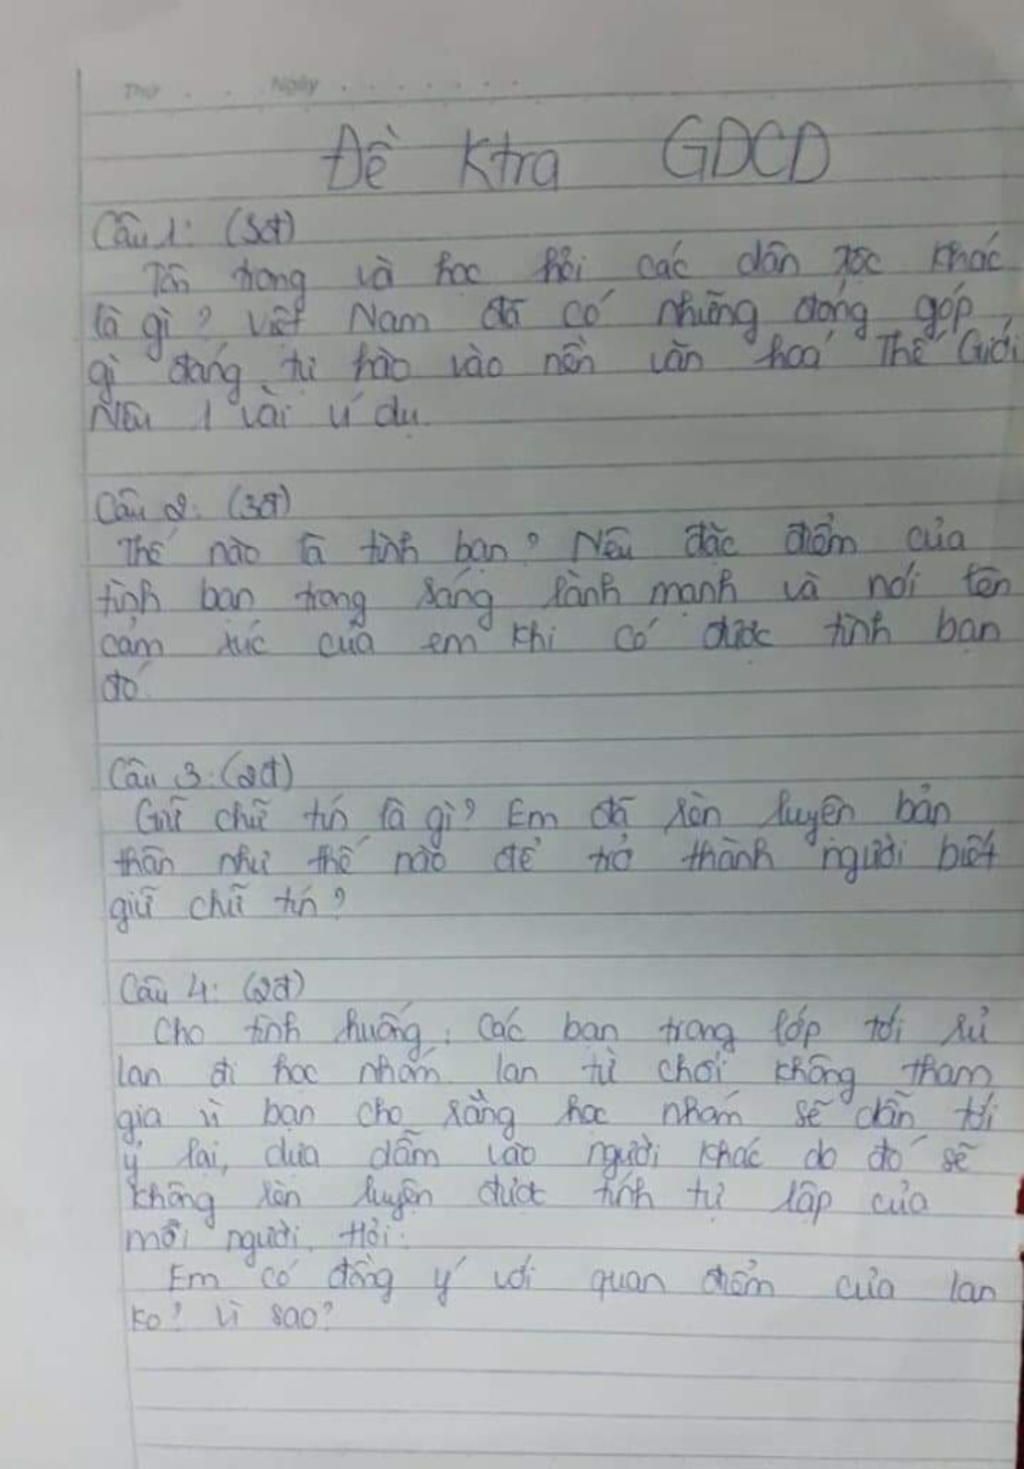 Thứ . . . Ngày . . . . . . .
Đề Ktra GDCD
Câu 1: (3đ)
Tôn trọng và học hỏi các dân tộc khác
là gì? Việt Nam đã có những đóng góp
gì đáng tự hào vào nền văn hoá Thế Giới
Nêu 1 vài ví dụ.
Câu 2: (3đ)
Thế nào là tình bạn? Nêu đặc điểm của
tình bạn trong sáng lành mạnh và nói lên
cảm xúc của em khi có được tình bạn
đó.
Câu 3: (2đ)
Giữ chữ tín là gì? Em đã rèn luyện bản
thân như thế nào để trở thành người biết
giữ chữ tín?
Câu 4: (2đ)
Cho tình huống: Các bạn trong lớp tới rủ
lan đi học nhóm. lan từ chối không tham
gia vì bạn cho rằng học nhóm sẽ dẫn tới
ỷ lại, dựa dẫm vào người khác do đó sẽ
không rèn luyện được tính tự lập của
mỗi người. Hỏi:
Em có đồng ý với quan điểm của lan
ko? Vì sao?